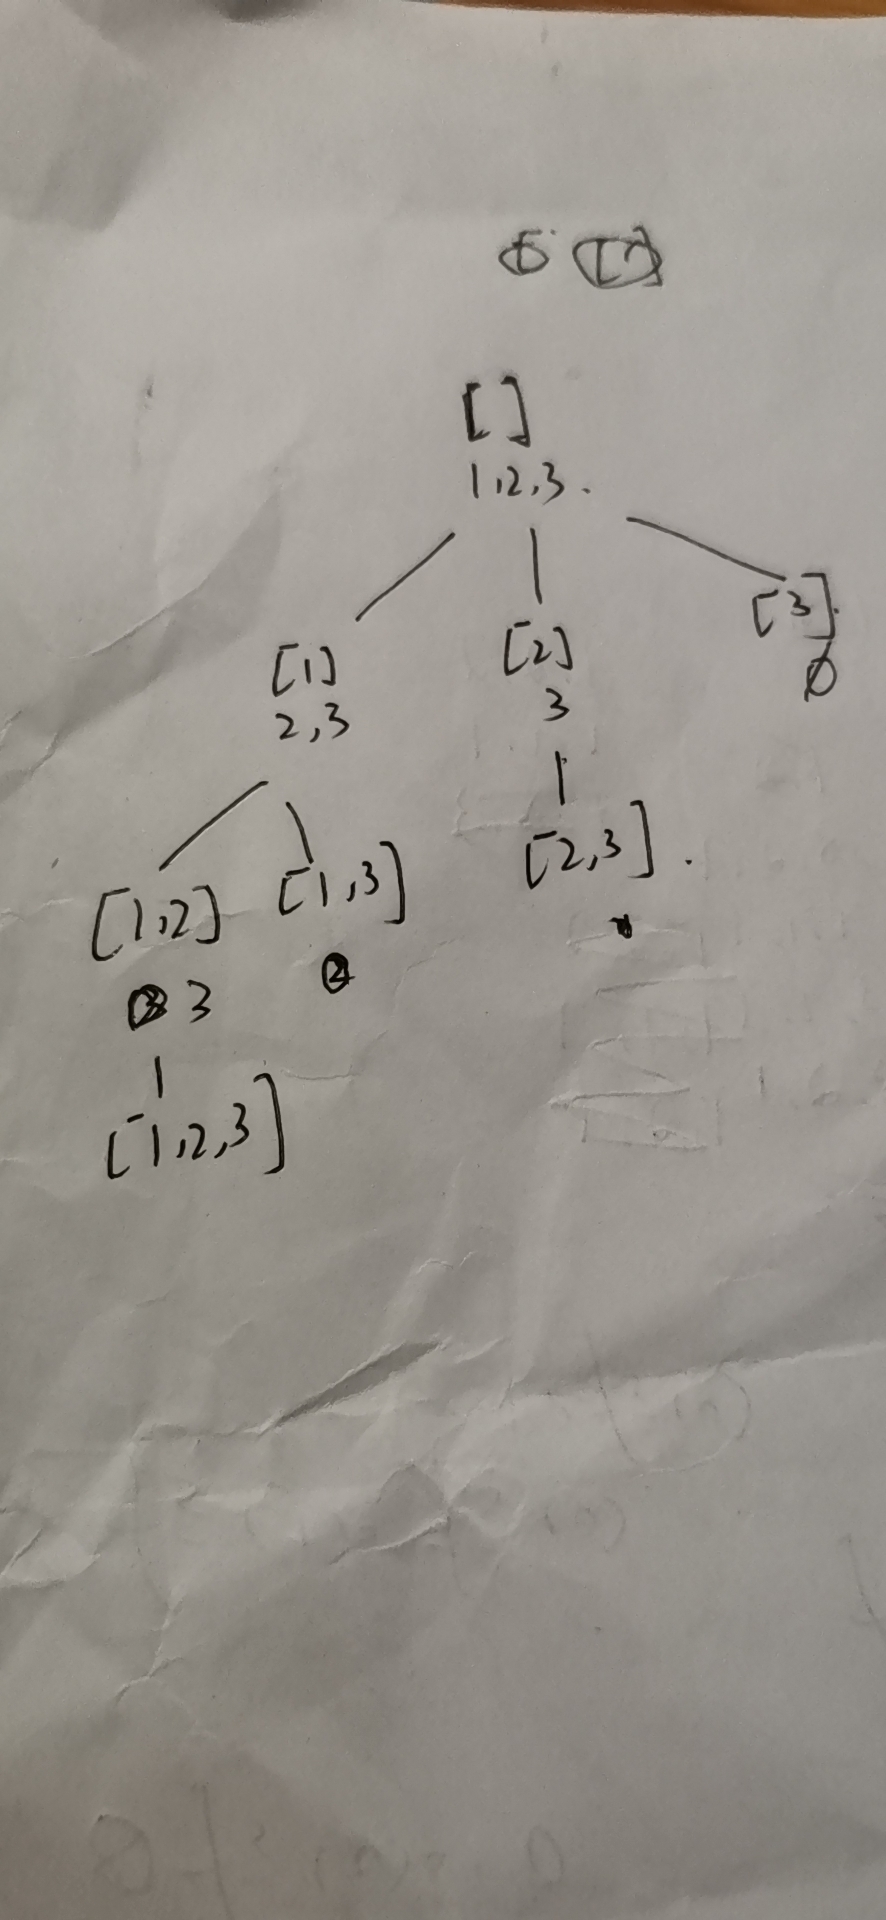 []
1,2,3.
[1] [2] [3].
2,3 3 ∅
[1,2] [1,3] [2,3].
3
[1,2,3]